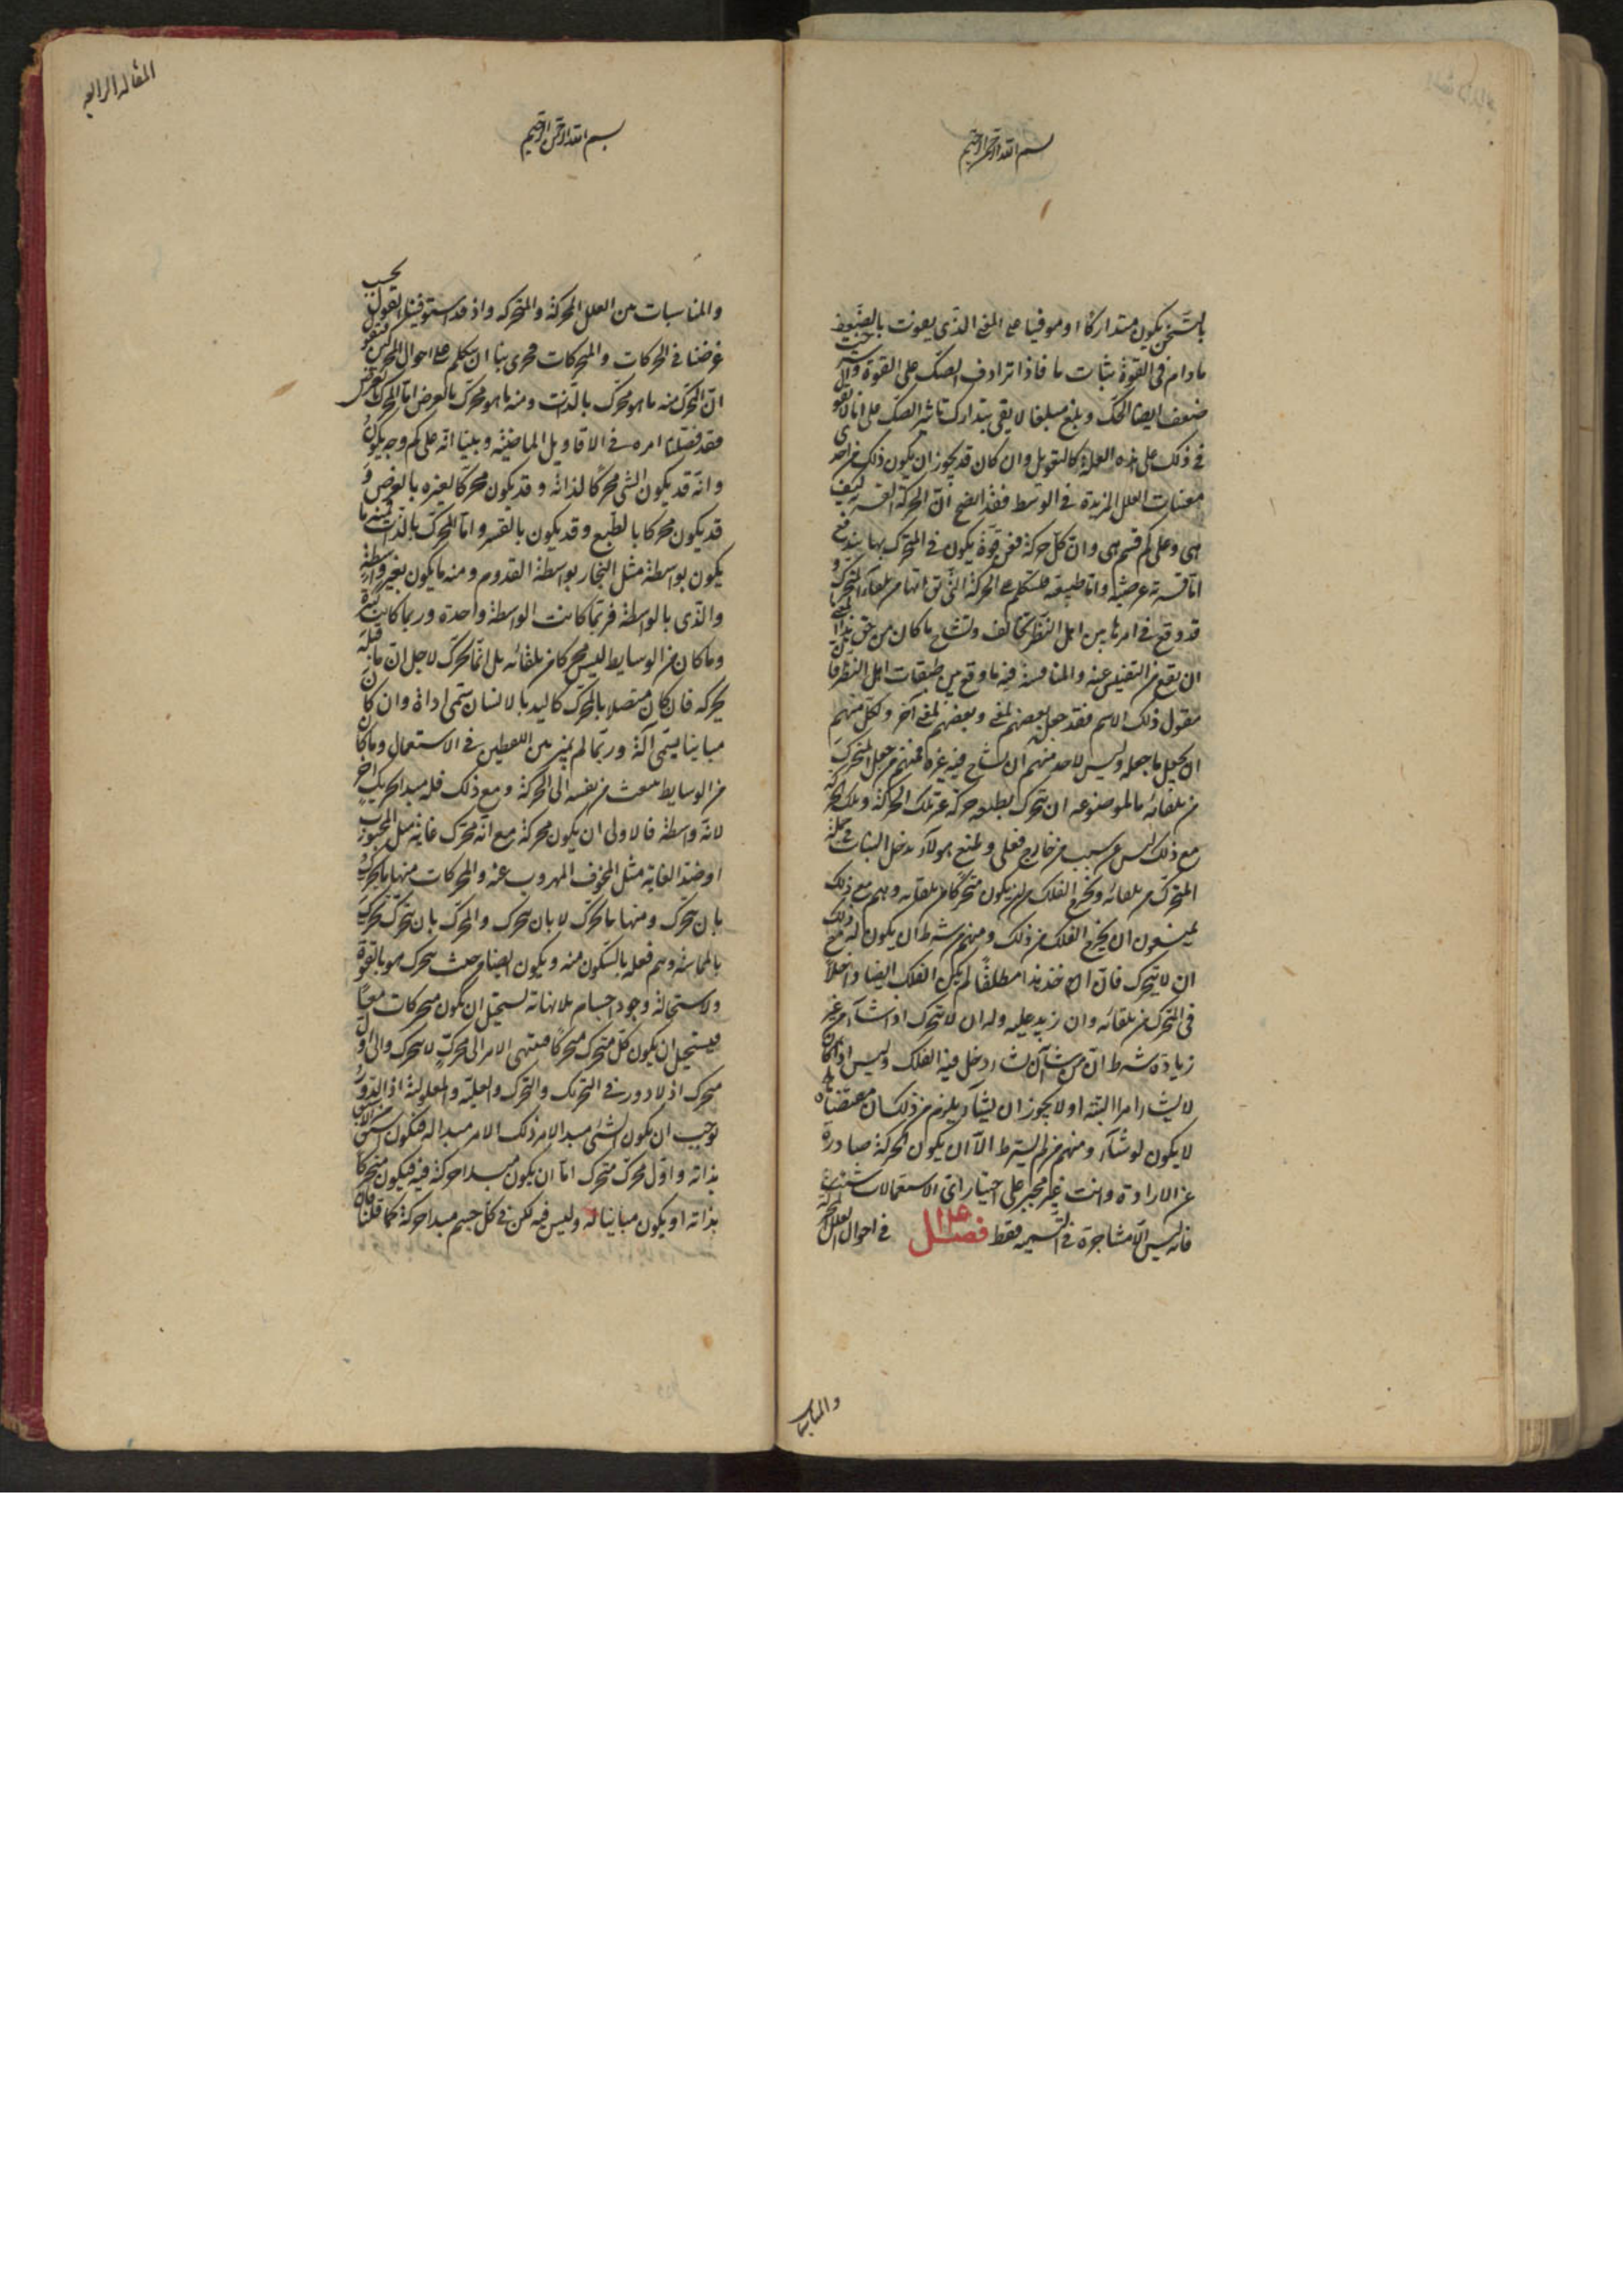 بسم الله الرحمن الرحيم
بالتسخن يكون متداركا او موفيا على المعنى الذى يعونت بالضعف
ما دام فى القوة ثبات ما فاذا ترادف الصك على القوة
ضعف ايضا الحك وبلغ مبلغا لا يفى بتدارك تاثير الصك على انا لا نقول
فى ذلك على هذه العلة كالتعويل وان كان قد يجوز ان يكون ذلك من احدى
معينات العلل المزيدة فى الوسط فقد اتضح ان الحركة القسرية كيف
هى وعلى كم قسم هى وان كل حركة فعن قوة يكون فى المتحرك بها يندفع
اما قسرية عرضية واما طبيعية فلنتكلم على الحركة التى يق انها من تلقاء المتحرك و
قد وقع فى امرها بين اهل النظر تخالف وتشاح ما كان من حق هذا المعنى
ان يقع من التفتيش عنه والمنافسة فيه ما وقع بين طبقات اهل النظر فان
مقول ذلك الاسم فقد جعل بعضهم لمعنى وبعضهم لمعنى آخر ولكل منهم
ان يجعل ما جعله وليس لاحد منهم ان يشاح فيه غيره فمنهم من جعل المتحرك
من تلقائه بالموضوعه ان يتحرك بطبعه حركة غير تلك الحركة وتلك الحركة
مع ذلك ليس عن سبب من خارج فعلى وضع هولآء يدخل النبات فى جملة
المتحرك من تلقائه ويخرج الفلك من ان يكون متحركا من تلقائه وهم مع ذلك
يمنعون ان يخرج الفلك من ذلك ومنهم من شرط ان يكون له مع ذلك
ان لا يتحرك فان اخذ هذا مطلقا لم يكن الفلك ايضا داخلا
فى المتحرك من تلقائه وان زيد عليه وله ان لا يتحرك اذا شآء من غير
زيادة شرط ان من شآن ان يشاء دخل فيه الفلك وليس اذا كان
لا يشاء امرا البتة او لا يجوز ان يشآء يلزم من ذلك ان
لا يكون لو شآء ومنهم من لم يشترط الا ان يكون الحركة صادرة
عن الارادة وانت غير مجبر على اختيار اى الاستعمالات شئت
فانه ليس الا مشاجرة فى التسمية فقط فصل ١٥ فى احوال العلل المحركة
والمناسبات
المقالة الرابعة
بسم الله الرحمن الرحيم
والمناسبات بين العلل المحركة والمتحركة واذ قد استوفينا القول بحسب
غرضنا فى الحركات والمتحركات فحرى بنا ان نتكلم على احوال المحركين فنقول
ان المحرك منه ما هو محرك بالذات ومنه ما هو محرك بالعرض اما المحرك بالعرض
فقد فصلنا امره فى الاقاويل الماضية وبينا انه على كم وجه يكون
وانه قد يكون الشئ محركا لذاته وقد يكون محركا لغيره بالعرض و
قد يكون محركا بالطبع وقد يكون بالقسر واما المحرك بالذات فمنه ما
يكون بواسطة مثل النجار بواسطة القدوم ومنه ما يكون بغير واسطة
والذى بالواسطة فربما كانت الواسطة واحدة وربما كانت كثيرة
وما كان من الوسايط ليس محركا من تلقائه بل انما تحرك لاجل ان ما قبله
يحركه فان كان متصلا بالمحرك كاليد بالانسان سمى اداة وان كان
مباينا يسمى آلة وربما لم يميز بين اللفظين فى الاستعمال وما كان
من الوسايط ينبعث من نفسه الى الحركة ومع ذلك فله مبدا تحريك آخر
لانه واسطة فالاولى ان يكون محركة مع انه محرك غاية مثل المحبوب
او ضد الغاية مثل المخوف المهروب عنه والمحركات منها ما يحرك
بان يتحرك ومنها ما يحرك لا بان يتحرك والمحرك بان يتحرك يحرك
بالمماسة ويتم فعله بالسكون منه ويكون ايضا من حيث يتحرك هو بالقوة
ولاستحالة وجود اجسام بلا نهاية يستحيل ان يكون متحركات معا
فيستحيل ان يكون كل متحرك متحركا فينتهى الامر الى محرك لا يتحرك والى اول
متحرك اذ لا دور فى التحريك والتحرك والعلية والمعلولية اذ الدور
يوجب ان يكون الشئ مبدا لامر ذلك الامر مبدا له فيكون اسبق من الاسبق
بذاته واول محرك متحرك اما ان يكون مبدا حركة فيه فيكون متحركا
بذاته او يكون مباينا له وليس فيه لكن فى كل جسم مبدا حركة كما قلنا فان